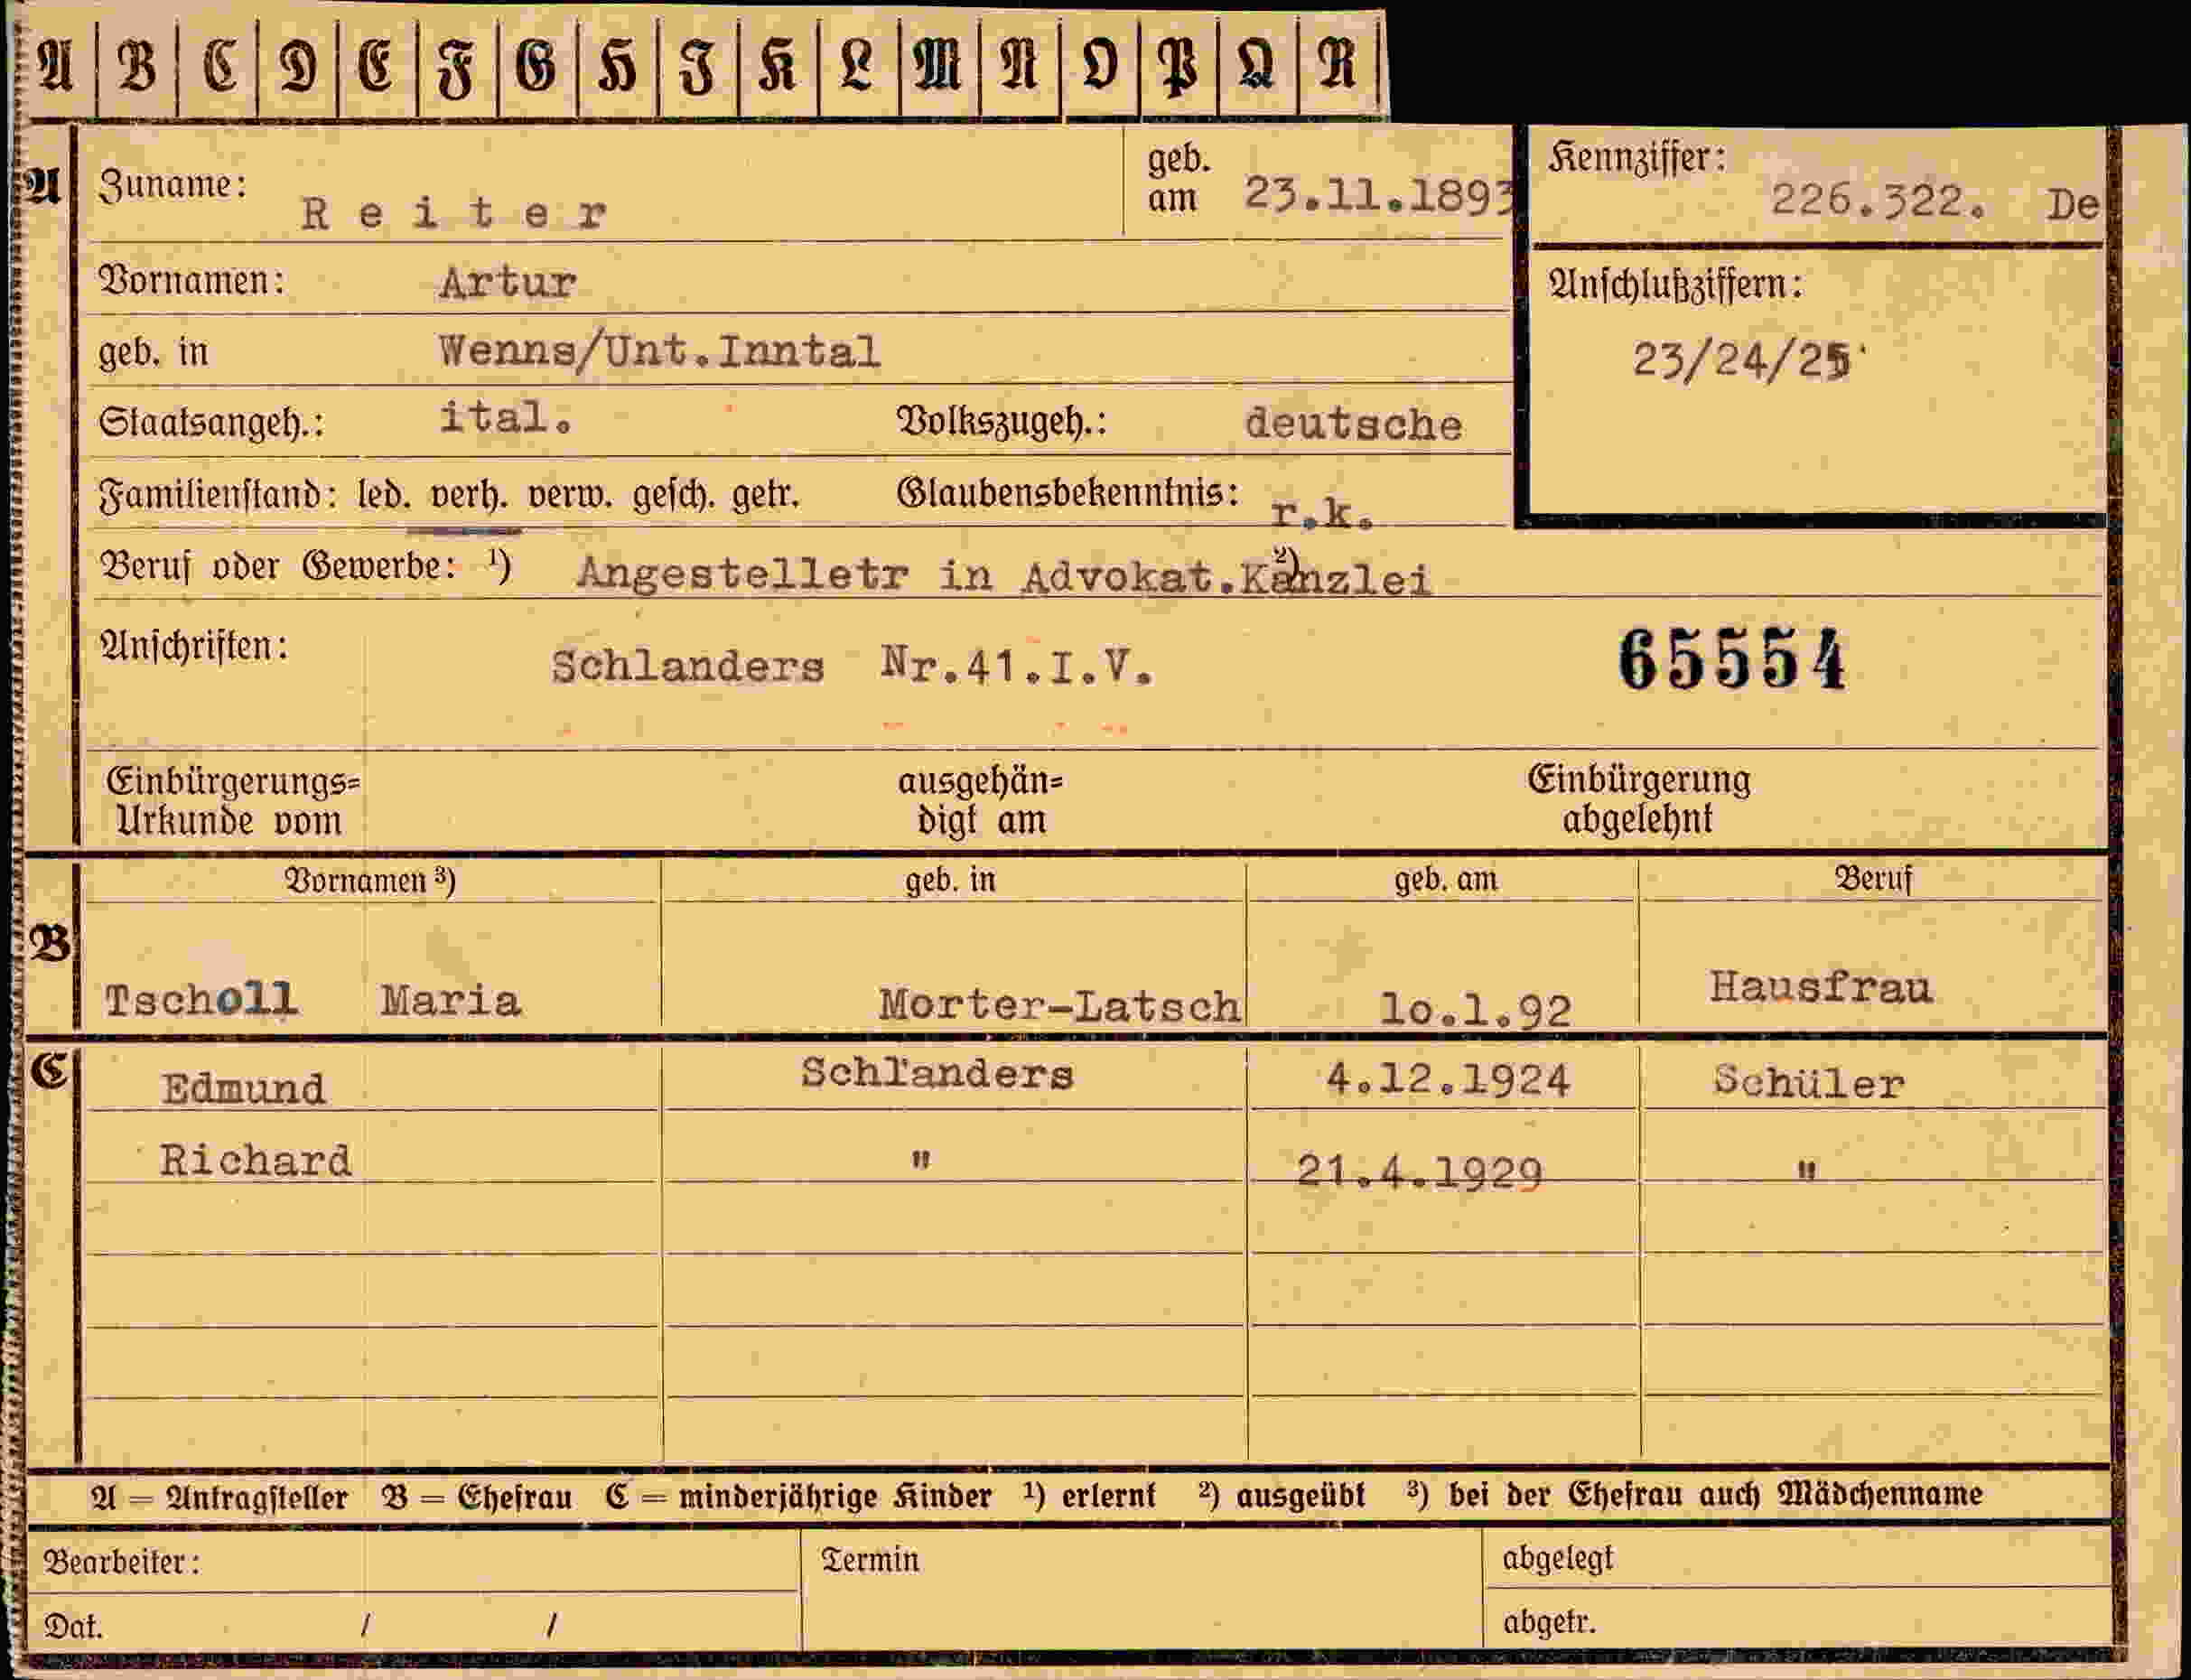 A B C D E F G H I K L M N O P Q R
A Zuname: Reiter geb. am 23.11.1893 Kennziffer: 226.322. De
Vornamen: Artur Anschlußziffern:
geb. in Wenns/Unt.Inntal 23/24/25
Staatsangeh.: ital. Volkszugeh.: deutsche
Familienstand: led. verh. verw. gesch. getr. Glaubensbekenntnis: r.k.
Beruf oder Gewerbe: ¹) Angestelletr in Advokat.Kanzlei ²)
Anschriften: Schlanders Nr.41.I.V. 65554
Einbürgerungs= ausgehän= Einbürgerung
Urkunde vom digt am abgelehnt
Vornamen ³) geb. in geb. am Beruf
B Tscholl Maria Morter-Latsch 10.1.92 Hausfrau
C Edmund Schlanders 4.12.1924 Schüler
Richard " 21.4.1929 "
A = Antragsteller B = Ehefrau C = minderjährige Kinder ¹) erlernt ²) ausgeübt ³) bei der Ehefrau auch Mädchenname
Bearbeiter: Termin abgelegt
Dat. / / abgetr.